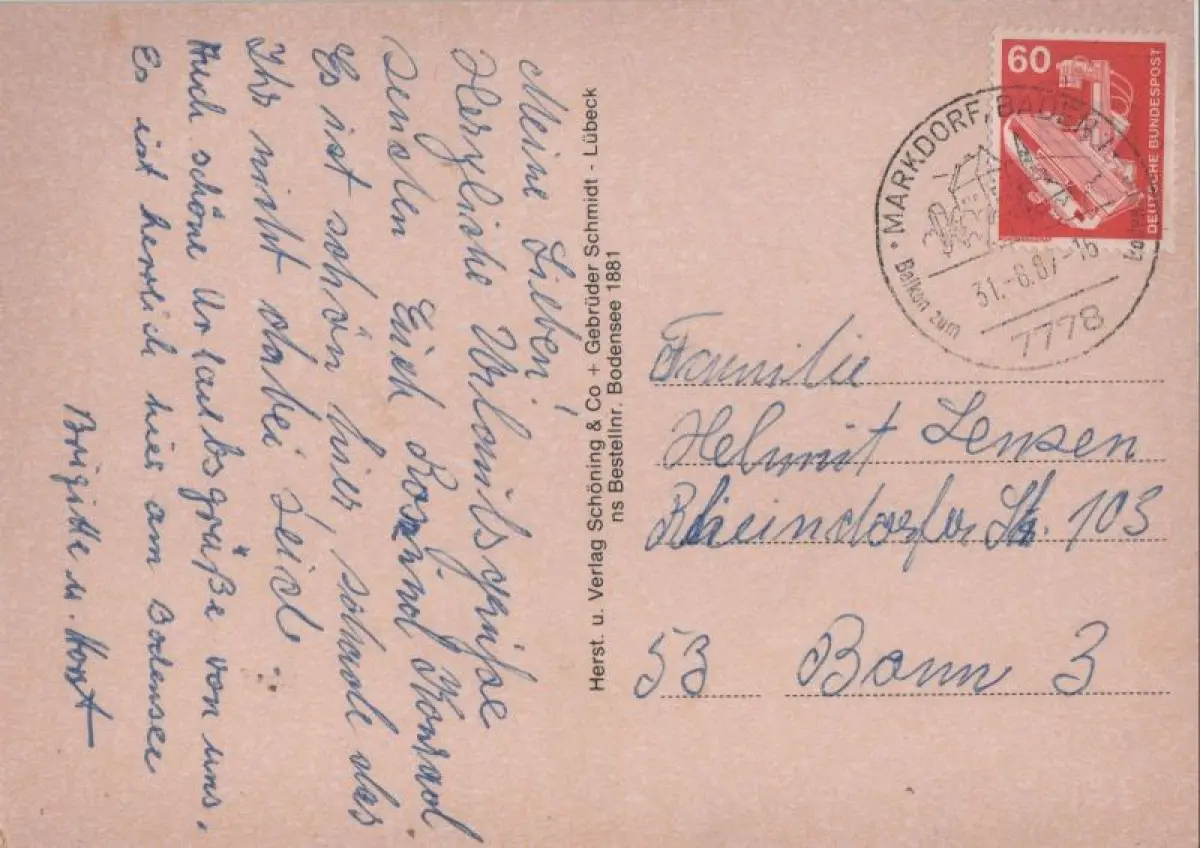 Meine Lieben!
Herzliche Urlaubsgrüße
senden Euch Konrad
Es ist schön hier, schade das
Ihr nicht dabei seid.
Auch schöne Urlaubsgrüße von uns.
Es ist herrlich hier am Bodensee
Brigitte u. Horst
Herst. u. Verlag Schöning & Co + Gebrüder Schmidt - Lübeck
ns Bestellnr. Bodensee 1881
60
DEUTSCHE BUNDESPOST
MARKDORF, BADEN
31.-8.87-16
Balkon zum
7778
Familie
Helmut Lensen
Rheindorfer Str. 103
53 Bonn 3